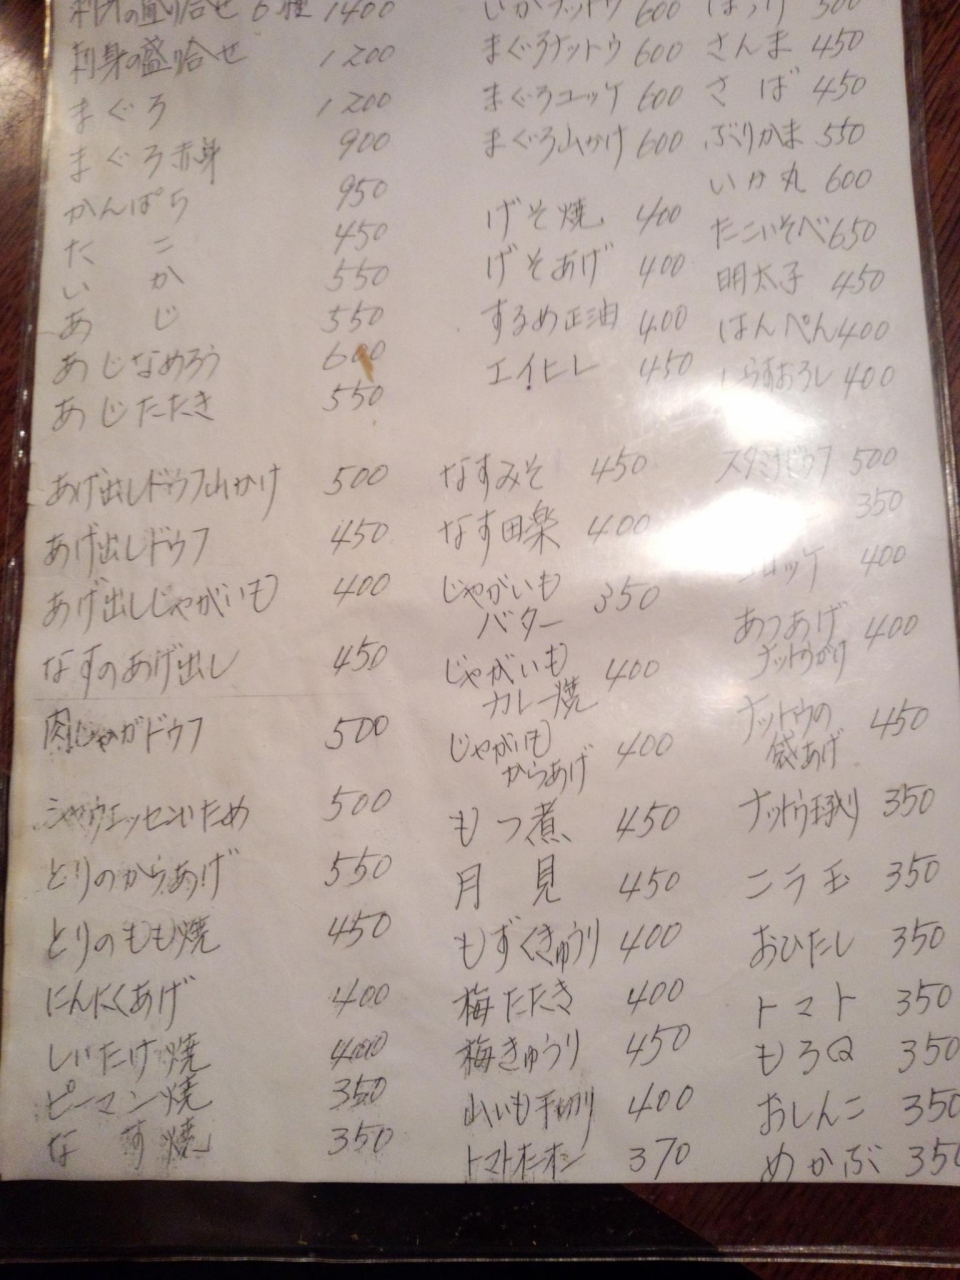 刺身の盛り合せ 6種 1400
刺身の盛り合せ 1200
まぐろ 1200
まぐろ赤身 900
かんぱち 950
たこ 450
いか 550
あじ 550
あじなめろう 600
あじたたき 550
あげ出しドウフ山かけ 500
あげ出しドウフ 450
あげ出しじゃがいも 400
なすのあげ出し 450
肉じゃがドウフ 500
シャウエッセンいため 500
とりのからあげ 550
とりのもも焼 450
にんにくあげ 400
しいたけ焼 400
ピーマン焼 350
なす焼 350
いかナットウ 600
まぐろナットウ 600
まぐろユッケ 600
まぐろ山かけ 600
げそ焼 400
げそあげ 400
するめ正油 400
エイヒレ 450
なすみそ 450
なす田楽 400
じゃがいも
バター 350
じゃがいも
カレー焼 400
じゃがいも
からあげ 400
もつ煮 450
月見 450
もずくきゅうり 400
梅たたき 400
梅きゅうり 450
山いも千切り 400
トマトオニオン 370
ほっけ 500
さんま 450
さば 450
ぶりかま 550
いか丸 600
たこいそべ 650
明太子 450
はんぺん 400
しらすおろし 400
スタミナドウフ 500
350
コロッケ 400
あつあげ
ナットウがけ 400
ナットウの
袋あげ 450
ナットウ玉入り 350
ニラ玉 350
おひたし 350
トマト 350
もろQ 350
おしんこ 350
めかぶ 350